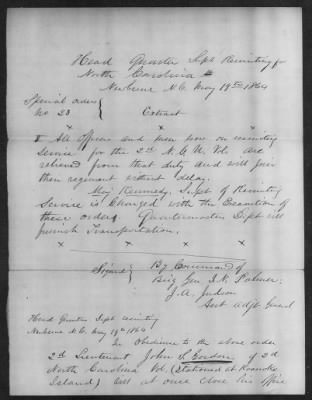 Head Quarters Supt Recruiting for
North Carolina
Newbern N.C. May 19th 1864
Special order
No 23
Extract
x x x
I All officers and men now on recruiting
Service for the 2nd N.C.U. Vols are
relieved from that duty and will join
their regiment without delay.
Maj Kennedy, Supt of Recruiting
Service is charged with the Execution of
these orders Quartermasters Dept will
furnish Transportation.
x x x
Signed By Command of
Brig Gen I.N. Palmer
J.A. Judson
Asst Adjt Genl
Head Quarters Supt recruiting
Newbern N.C. May 19th 1864
In Obedience to the above order
2d Lieutenant John S. Gordon of 2d
North Carolina Vol. (Stationed at Roanoke
Island) will at once close his office